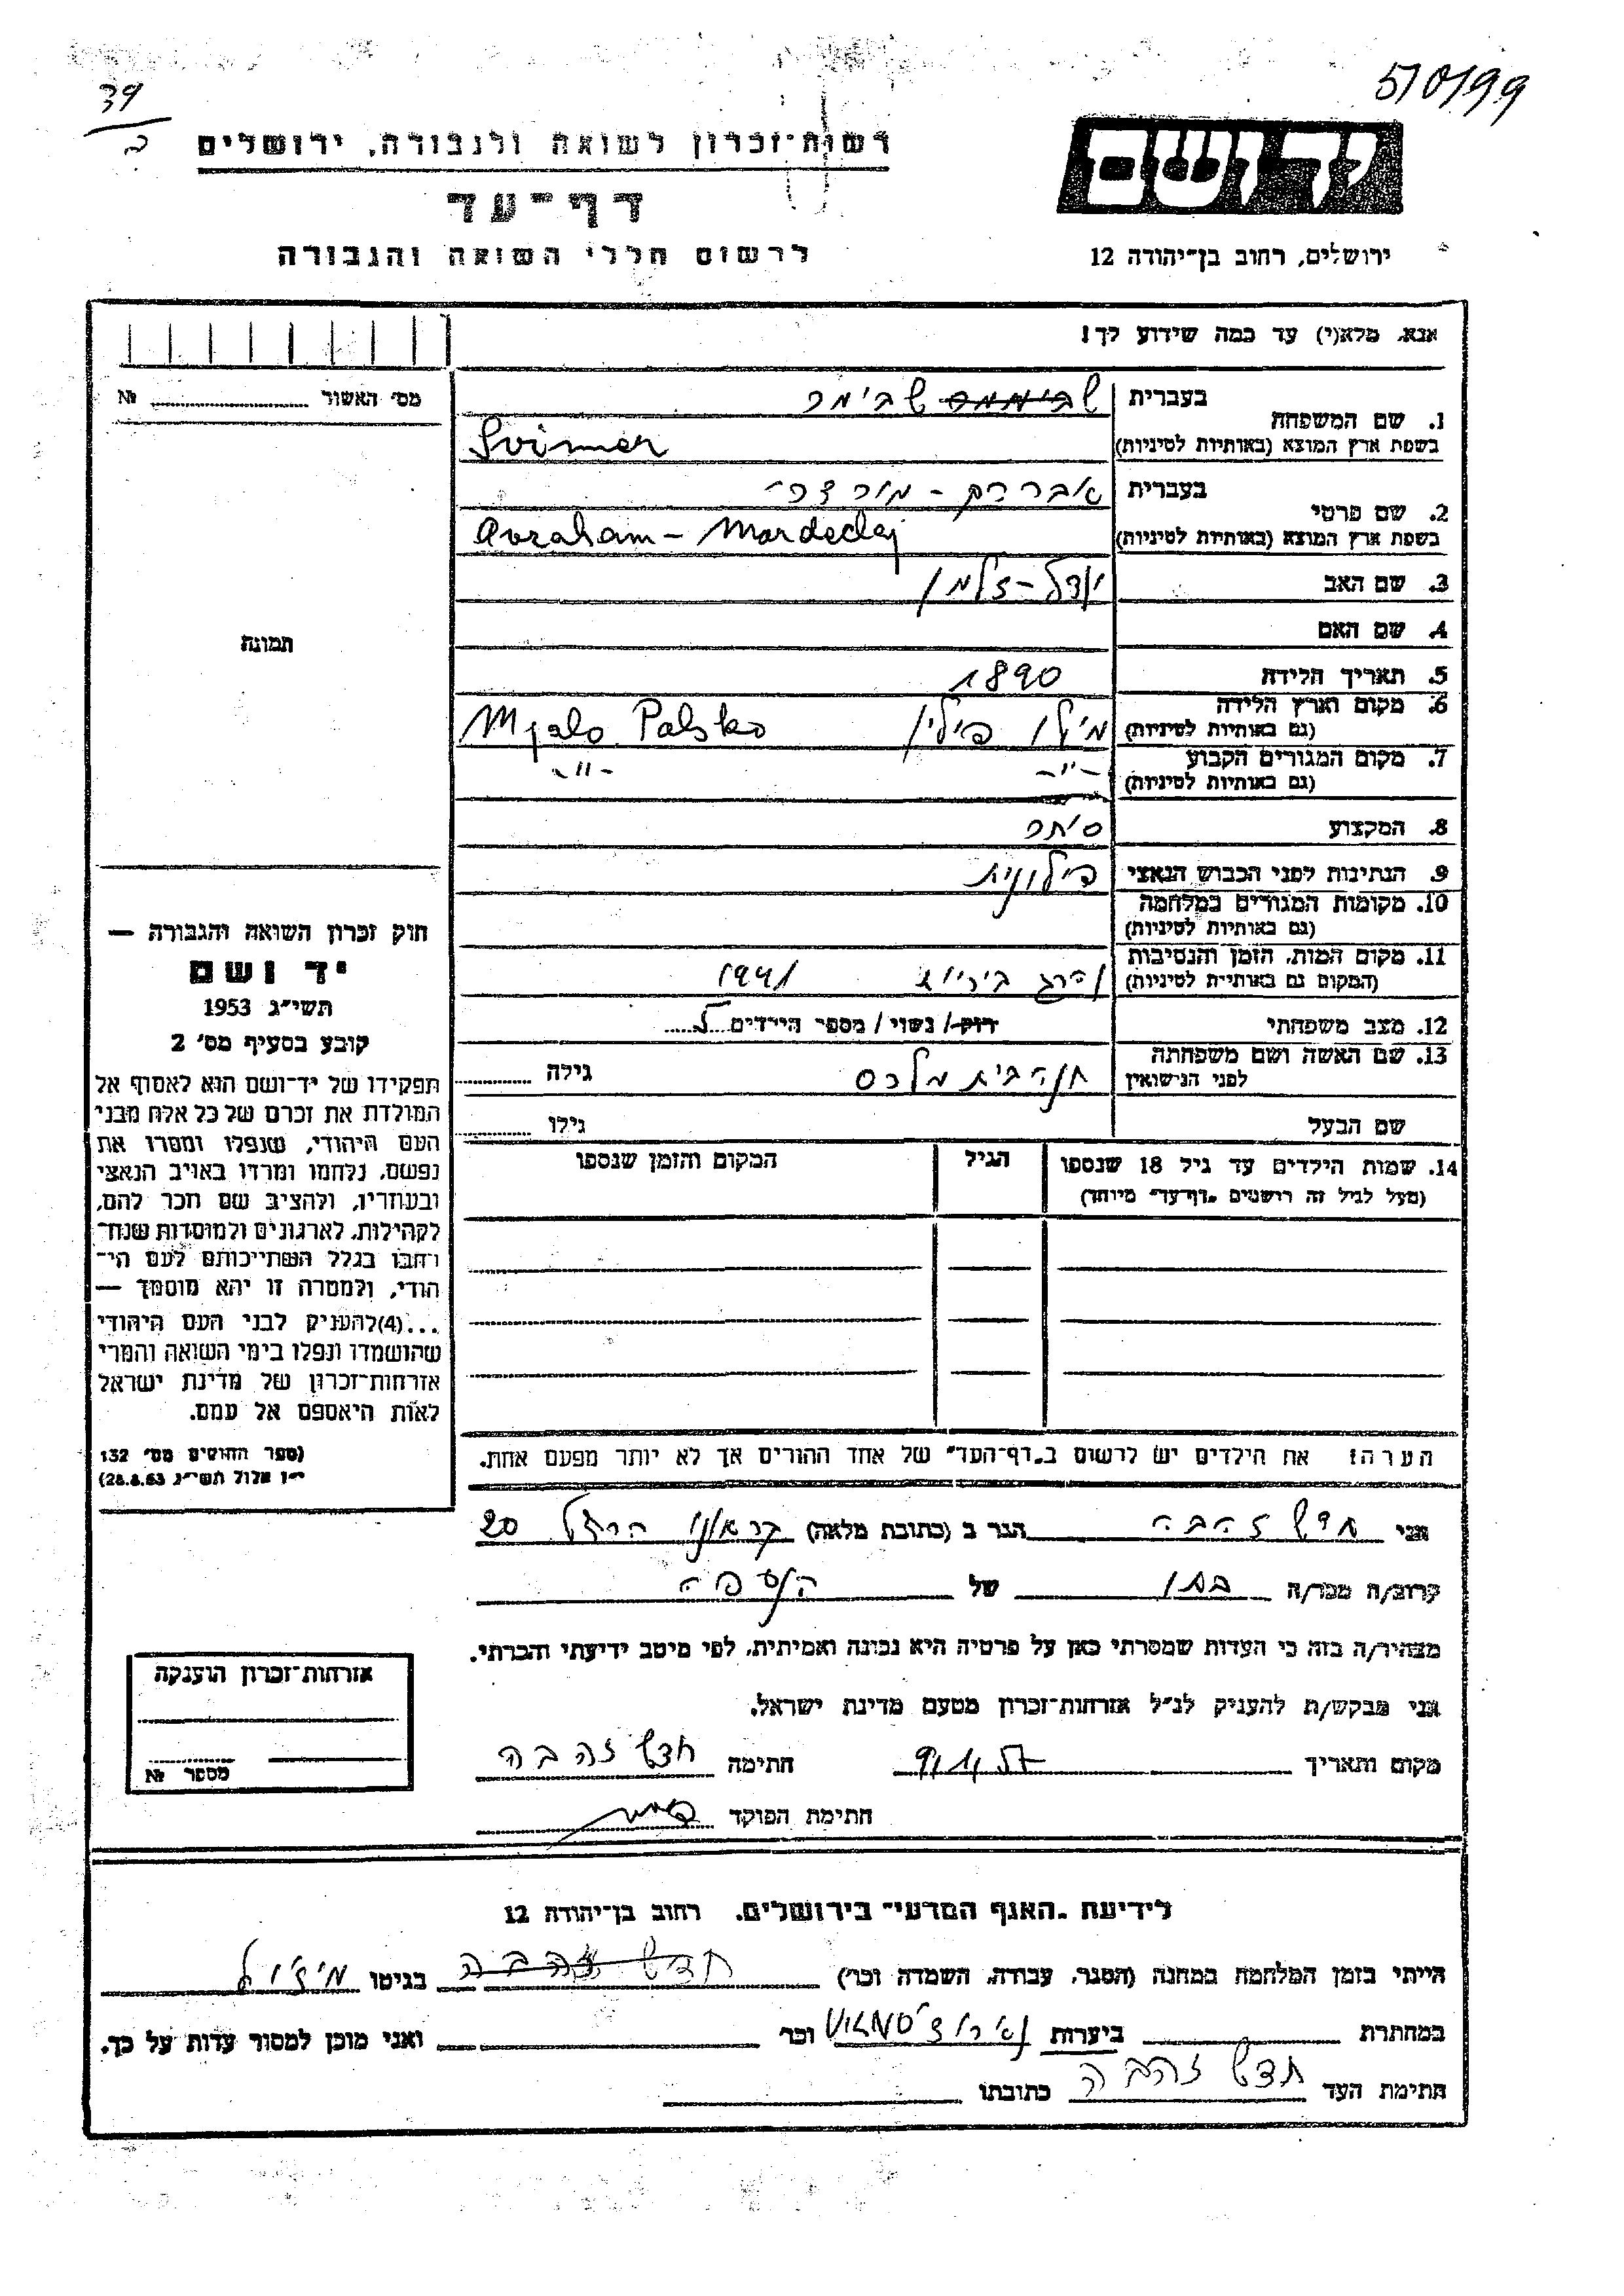 510199
39
ב
רשות־זכרון לשואה ולגבורה, ירושלים
יד ושם
דף־עד
לרשום חללי השואה והגבורה
ירושלים, רחוב בן־יהודה 12
אנא, מלא(י) עד כמה שידוע לך!
מס׳ האשור № 
1. שם המשפחה
בעברית שבימר
בשפת ארץ המוצא (באותיות לטיניות) Svimer
2. שם פרטי
בעברית אברהם - מורדכי
בשפת ארץ המוצא (באותיות לטיניות) Avraham - Mardechaj
3. שם האב יודל - זלמן
4. שם האם
תמונה
5. תאריך הלידה 1890
6. מקום וארץ הלידה
(גם באותיות לטיניות) פולין Palsko
7. מקום המגורים הקבוע
(גם באותיות לטיניות) -"- -"-
8. המקצוע סוחר
9. הנתינות לפני הכבוש הנאצי פולונית
10. מקומות המגורים במלחמה
(גם באותיות לטיניות)
11. מקום המות, הזמן והנסיבות
(המקום גם באותיות לטיניות) נהרג 1941
12. מצב משפחתי רוק/ נשוי/ מספר הילדים
13. שם האשה ושם משפחתה
לפני הנישואין חנה בית מלכס גילה
שם הבעל גילו
14. שמות הילדים עד גיל 18 שנספו הגיל המקום והזמן שנספו
(מעל לגיל זה רושמים "דף־עד" מיוחד)
חוק זכרון השואה והגבורה —
יד ושם
תשי״ג 1953
קובע בסעיף מס׳ 2
תפקידו של יד־ושם הוא לאסוף אל
המולדת את זכרם של כל אלה מבני
העם היהודי, שנפלו ומסרו את
נפשם, נלחמו ומרדו באויב הנאצי
ובעוזריו, ולהציב שם וזכר להם,
לקהילות, לארגונים ולמוסדות שנח־
רבו בגלל השתייכותם לעם הי־
הודי, ולמטרה זו יהא מוסמך —
...(4)להעניק לבני העם היהודי
שהושמדו ונפלו בימי השואה והמרי
אזרחות־זכרון של מדינת ישראל
לאות היאספם אל עמם.
(ספר החוקים מס׳ 132
י״ז אלול תשי״ג 28.8.53)
הערה: את הילדים יש לרשום ב"דף־העד" של אחד ההורים אך לא יותר מפעם אחת.
אני חדש זהבה הגר ב (כתובת מלאה) הרצל 20
קרוב/ה מכר/ה בתו של הנספה
מצהיר/ה בזה כי העדות שמסרתי כאן על פרטיה היא נכונה ואמיתית, לפי מיטב ידיעתי והכרתי.
אני מבקש/ת להעניק לנ״ל אזרחות־זכרון מטעם מדינת ישראל.
מקום ותאריך חתימה חדש זהבה
חתימת הפוקד
אזרחות־זכרון הוענקה
מספר №
לידיעת "האגף המדעי" בירושלים, רחוב בן־יהודה 12
הייתי בזמן המלחמה במחנה (הסגר, עבודה, השמדה וכר׳) חדש זהבה בגיטו
במחתרת ביערות וכר׳ ואני מוכן למסור עדות על כך.
חתימת העד חדש זהבה כתובתו